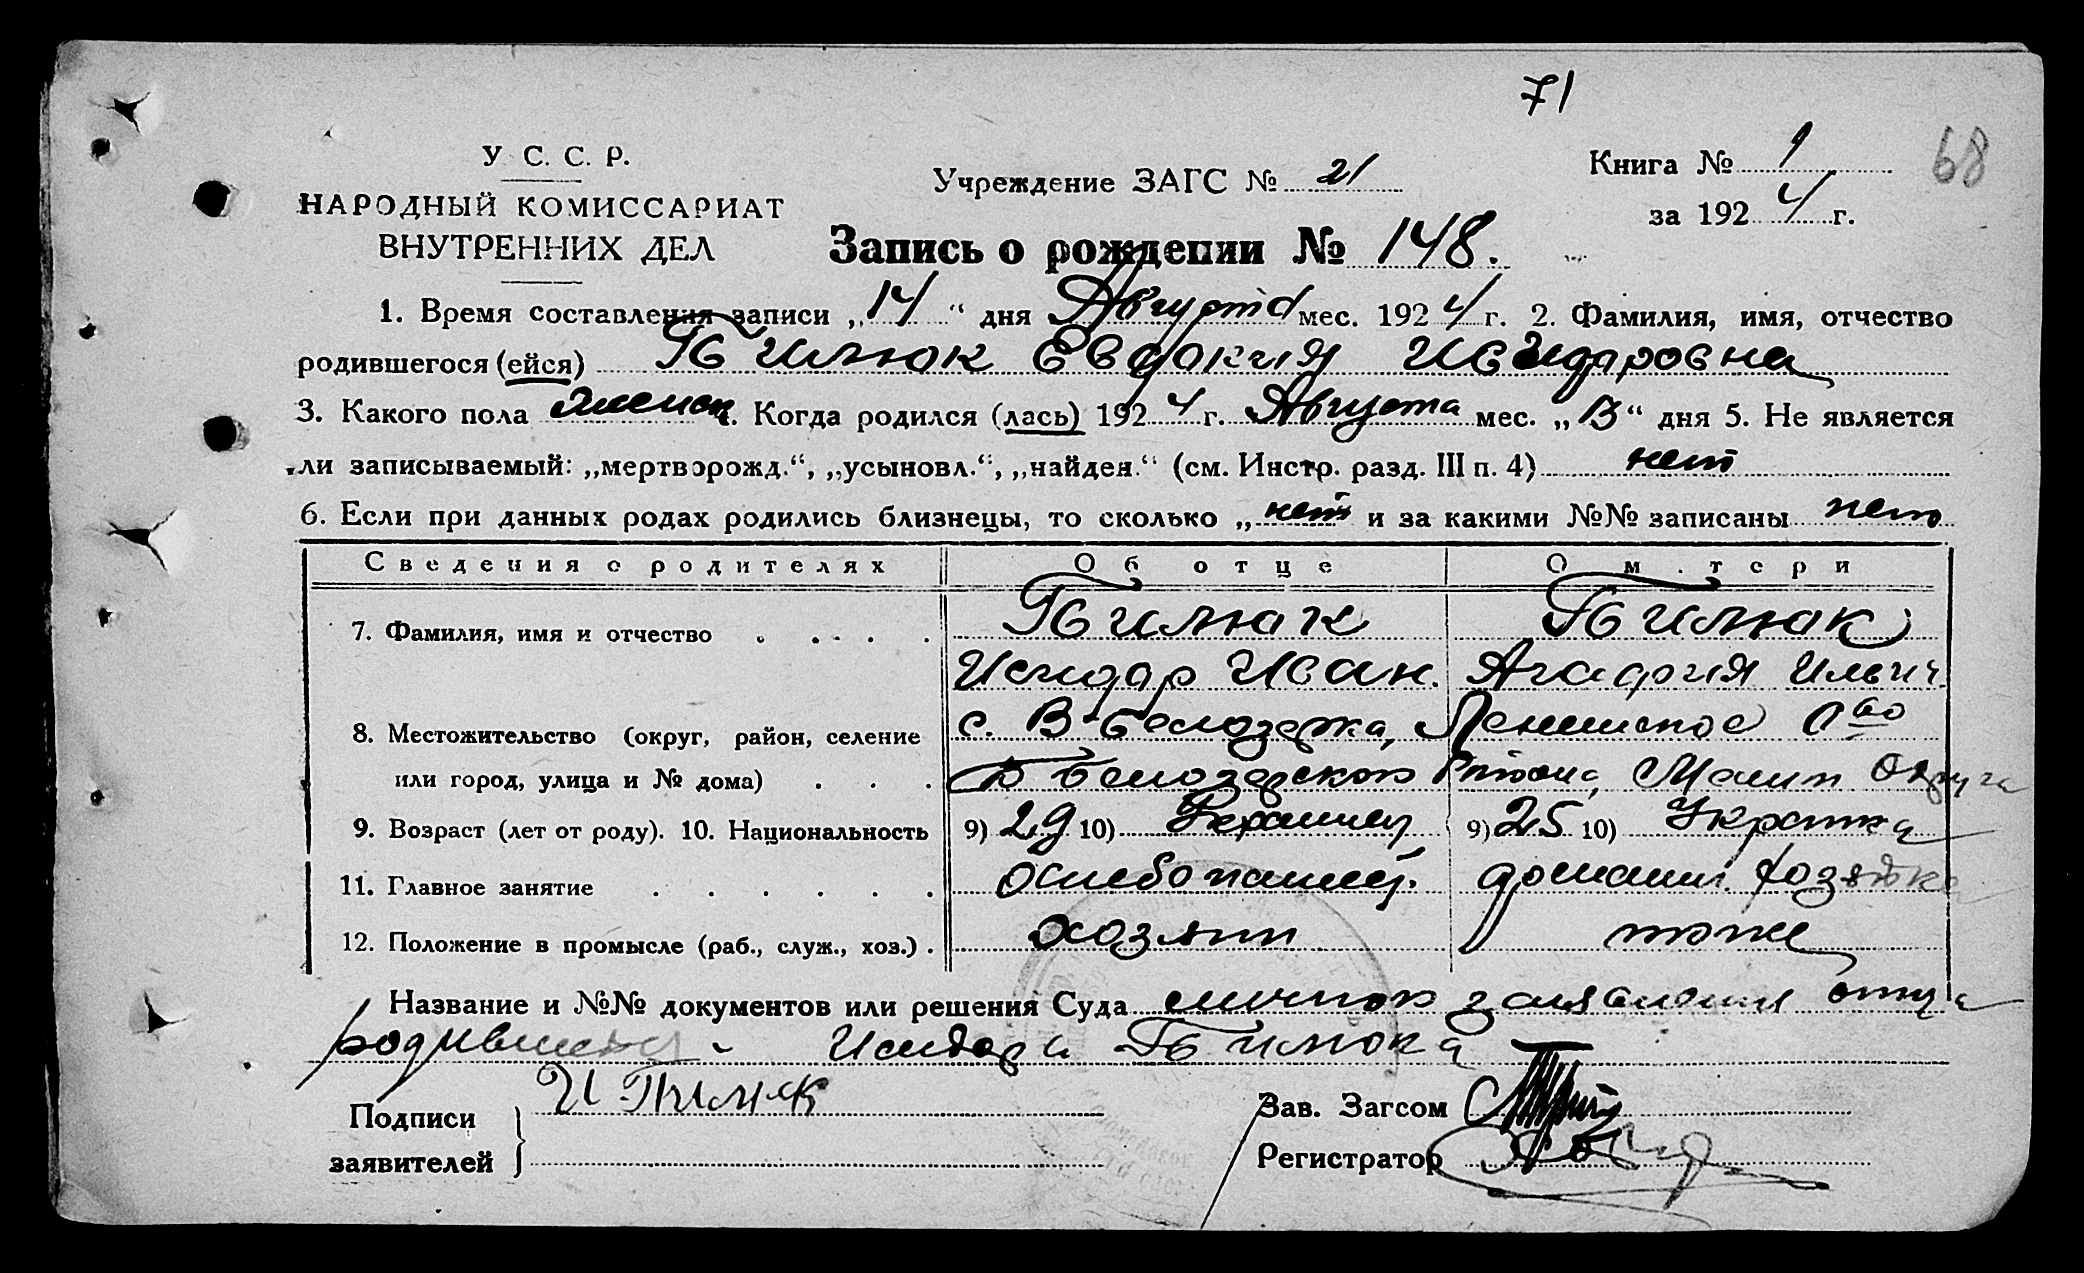 71
68
У. С. С. Р.
НАРОДНЫЙ КОМИССАРИАТ
ВНУТРЕННИХ ДЕЛ
Учреждение ЗАГС № 21
Книга № 1
за 1924 г.
Запись о рождении № 148.
1. Время составления записи „14“ дня Августа мес. 1924 г. 2. Фамилия, имя, отчество
родившегося (ейся) Гвилюк Евдокия Исидоровна
3. Какого пола женск 4. Когда родился (лась) 1924 г. Августа мес. „13“ дня 5. Не является
ли записываемый: „мертворожд.“, „усыновл.“, „найден.“ (см. Инстр. разд. III п. 4) нет
6. Если при данных родах родились близнецы, то сколько „нет и за какими №№ записаны нет
Сведения о родителях Об отце О матери
7. Фамилия, имя и отчество
Исидор Иван. Агафия Ильин
8. Местожительство (округ, район, селение с. В-Белозерка,
или город, улица и № дома) В Белозерской Района, Мелит Округа
9. Возраст (лет от роду). 10. Национальность 9) 29 10) Украинец 9) 25 10) Украинка
11. Главное занятие хлебопашец. домашн. хозяйка
12. Положение в промысле (раб., служ., хоз.) хозяин тоже
Название и №№ документов или решения Суда заявления отца
Исидора
Подписи
заявителей
И
Зав. Загсом
Регистратор